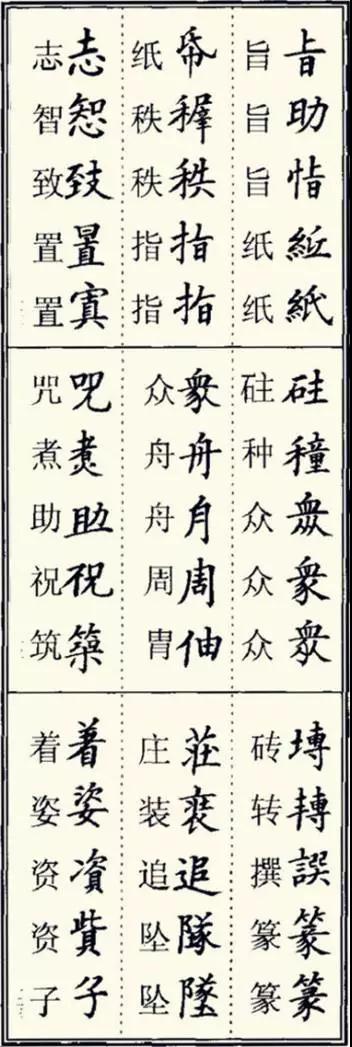 助恉紙
旨旨旨纸纸
帋秩指指
纸秩秩指指
志致置寘
志智致置置
種眾衆衆
砫种众众众
衆舟月周伷
众舟舟周胄
呪煑助祝築
咒煮助祝筑
塼轉譔篆篆
砖转撰篆篆
莊追隊墜
庄装追坠坠
着姿資貲子
着姿资资子